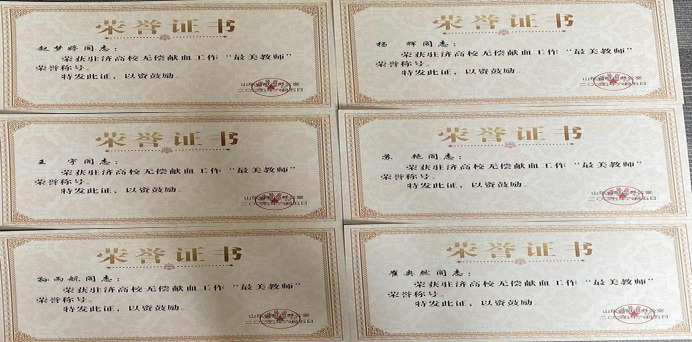 荣誉证书
赵梦婷同志：
荣获驻济高校无偿献血工作“最美教师”
荣誉称号。
特发此证，以资鼓励。
荣誉证书
杨 辉同志：
荣获驻济高校无偿献血工作“最美教师”
荣誉称号。
特发此证，以资鼓励。
荣誉证书
王 宇同志：
荣获驻济高校无偿献血工作“最美教师”
荣誉称号。
特发此证，以资鼓励。
荣誉证书
苏 艳同志：
荣获驻济高校无偿献血工作“最美教师”
荣誉称号。
特发此证，以资鼓励。
荣誉证书
孙雨航同志：
荣获驻济高校无偿献血工作“最美教师”
荣誉称号。
特发此证，以资鼓励。
荣誉证书
崔奥然同志：
荣获驻济高校无偿献血工作“最美教师”
荣誉称号。
特发此证，以资鼓励。